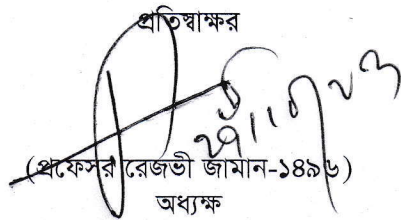 প্রতিস্বাক্ষর
(প্রফেসর রেজভী জামান-১৪৯৬)
অধ্যক্ষ